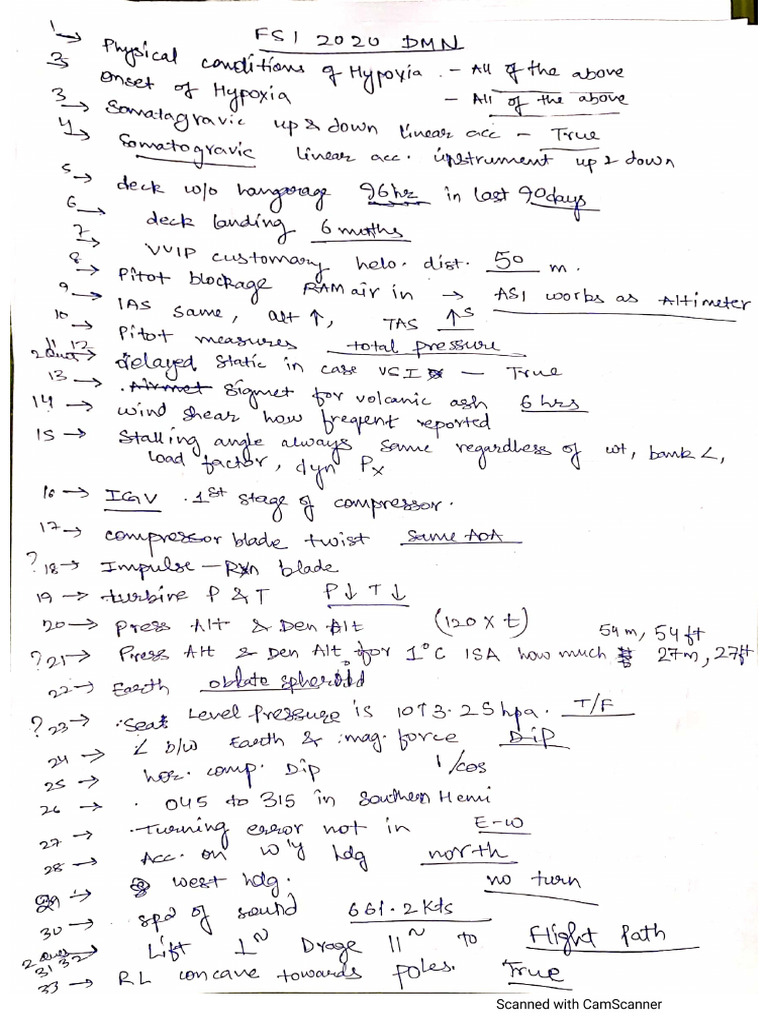 FSI 2020 DMN
1→ Physical conditions of Hypoxia. - All of the above
2→ onset of Hypoxia - All of the above
3→ Somatagravic up & down linear acc - True
4→ Somatogravic linear acc. instrument up & down
5→ deck w/o hangorage 96hr in last 90days
6→ deck landing 6 months
7→ VVIP customary helo. dist. 50 m.
8→ Pitot blockage RAM air in → ASI works as Altimeter
9→ IAS same, alt ↑, TAS ↑s
10→ Pitot measures total pressure
11 12 → delayed static in case VSI - True
13→ Airmet Sigmet for volcanic ash 6 hrs
14→ wind shear how frequent reported
15→ Stalling angle always same regardless of wt, bank ∠,
load factor, dyn Px
16→ IGV . 1st stage of compressor.
17→ compressor blade twist same AOA
?18→ Impulse - Rxn blade
19→ turbine P & T P↓ T↓
20→ press Alt & Den Alt (120 x t)
54m, 54ft
?21→ Press Alt & Den Alt, for 1°C ISA how much 27m, 27ft
22→ Earth oblate spheroid
?23→ Seat Level Pressure is 1013.25hpa. T/F
24→ ∠ b/w Earth & mag. force Dip
25→ hor. comp. Dip 1/cos
26→ 045 to 315 in Southern Hemi
27→ Turning error not in E-W
28→ Acc. on w'y hdg north
29→ west hdg. no turn
30→ spd of sound 661.2Kts
31 32→ Lift ⊥ Drage || to Flight Path
33→ RL concave towards poles. True
Scanned with CamScanner